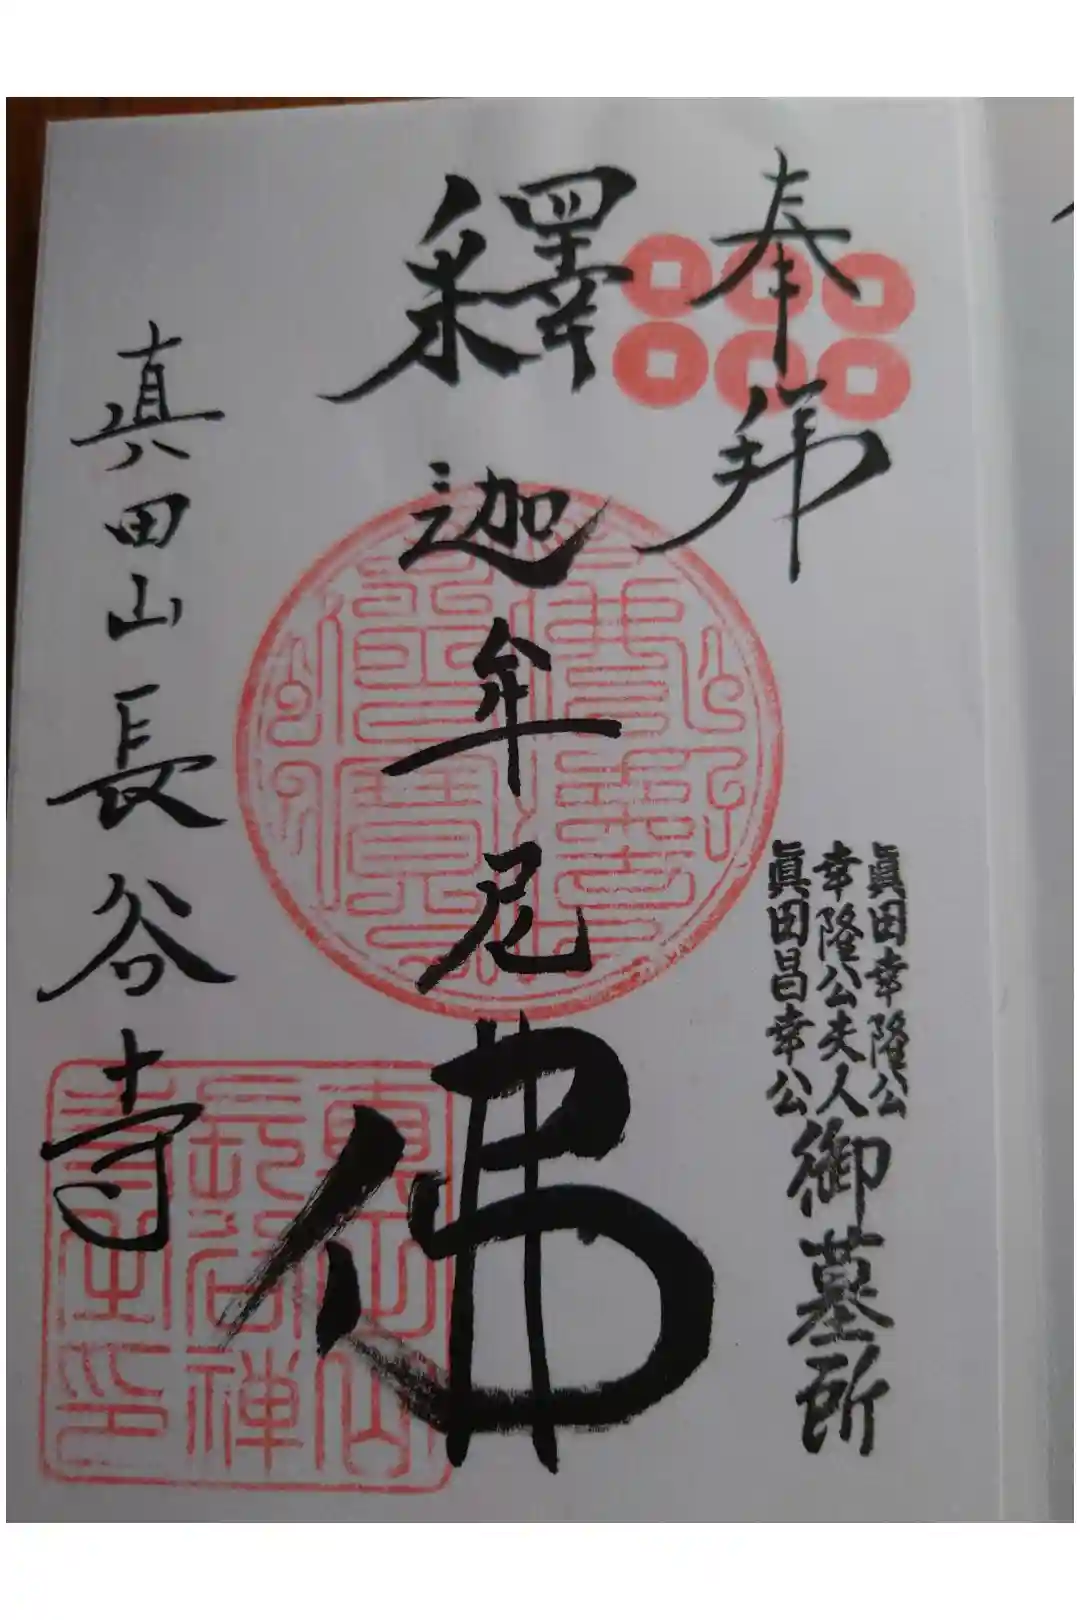 奉拝
眞田幸隆公
幸隆公夫人
眞田昌幸公
御墓所
釋迦牟尼佛
佛法僧寶
眞田山長谷寺
眞田山
長谷禅
寺之印